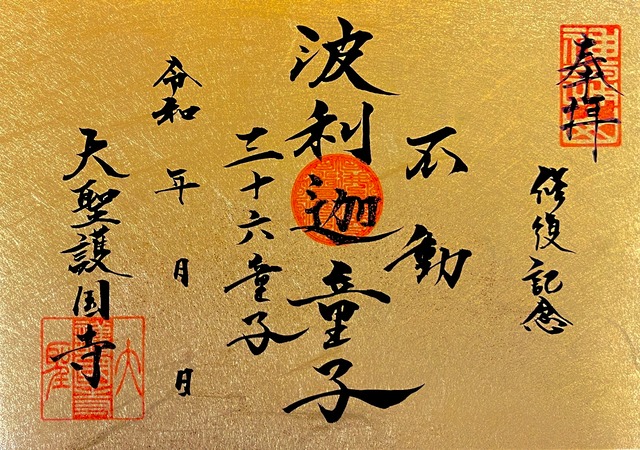 奉拝
修復記念
不動
波利迦童子
三十六童子
令和 年 月 日
大聖護国寺